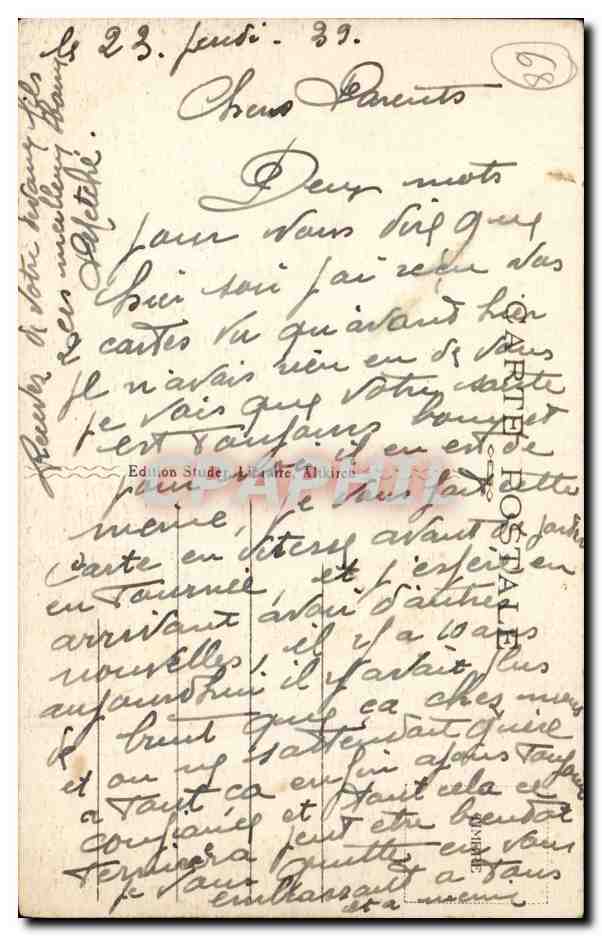 le 23. jeudi. 39.
68
Chers Parents
Deux mots
pour vous dire que
hier soir j'ai reçu vos
cartes vu qu'avant hier
je n'avais rien eu de vous
je vois que votre santé
est toujours bonne et
pour moi il en est de
même, je vous fait cette
carte en vitesse avant de partir
en tournée, et j'espère en
arrivant avoir d'autres
nouvelles, il y a 10 ans
aujourd'hui il y avait plus
de bruit que ça chez nous
et on ne s'attendait guère
a tant ça enfin ayons toujours
confiance et tout cela ce
terminera peut être bientôt
je vous quitte en vous
embrassant a tous
et a
Recevez de votre fils
ces meilleurs
CARTE POSTALE
Edition Studer, Libraire, Altkirch
CPAPHIL